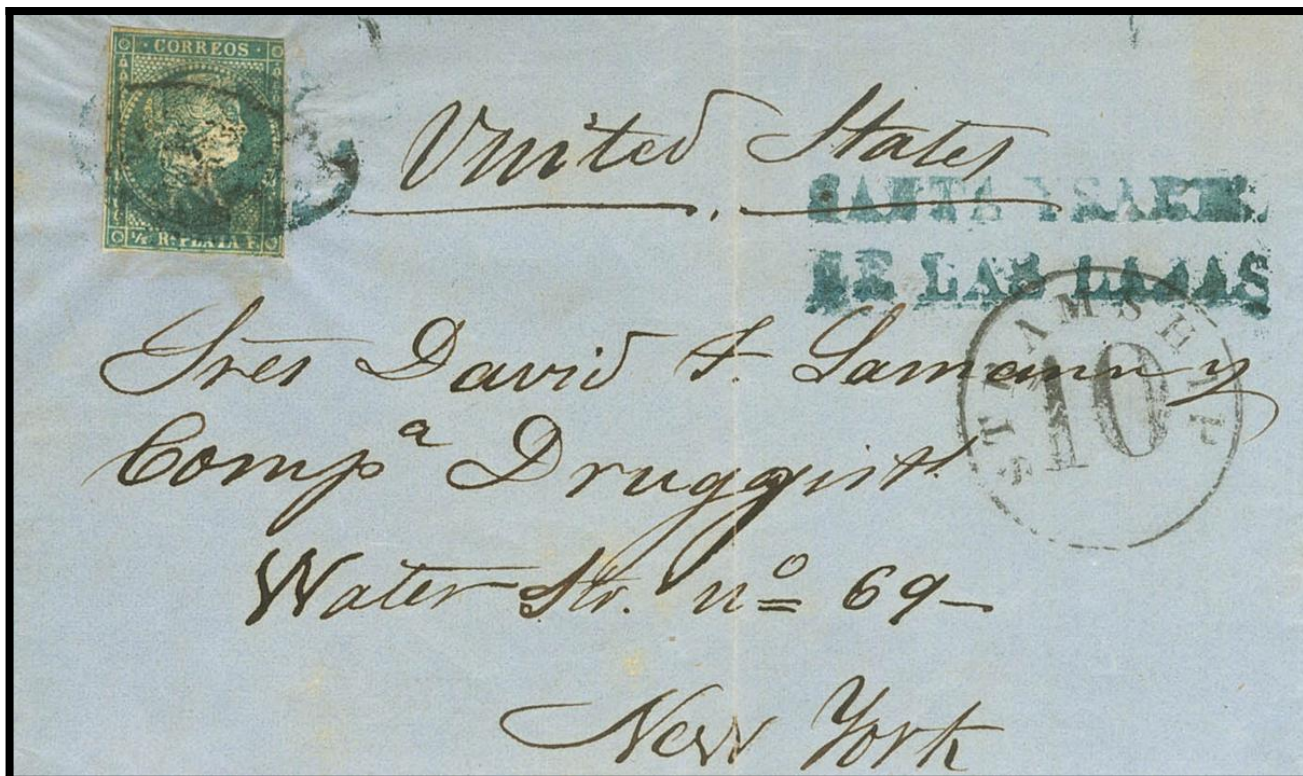 CORREOS
½ Rl. PLATA F.
United States
SANTA YSABEL
DE LAS LAJAS
STEAMSHIP
10
Sres David F. Lamann y
Compª Druggist
Water Str. nº 69-
New York